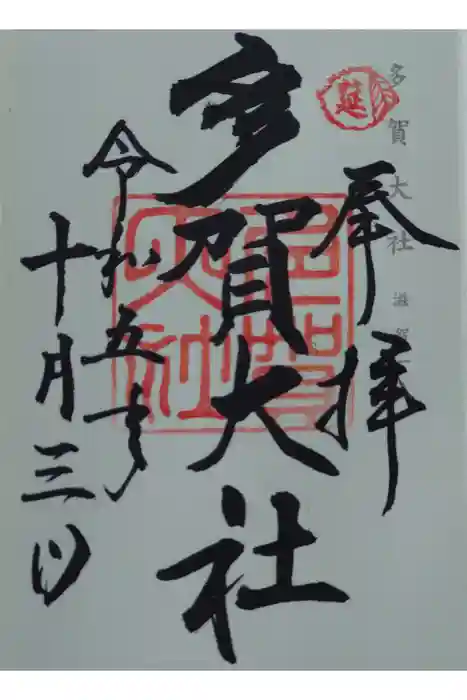 延
多賀大社 滋賀
奉拝
多賀大社
多賀大社
令和五年
十月三日